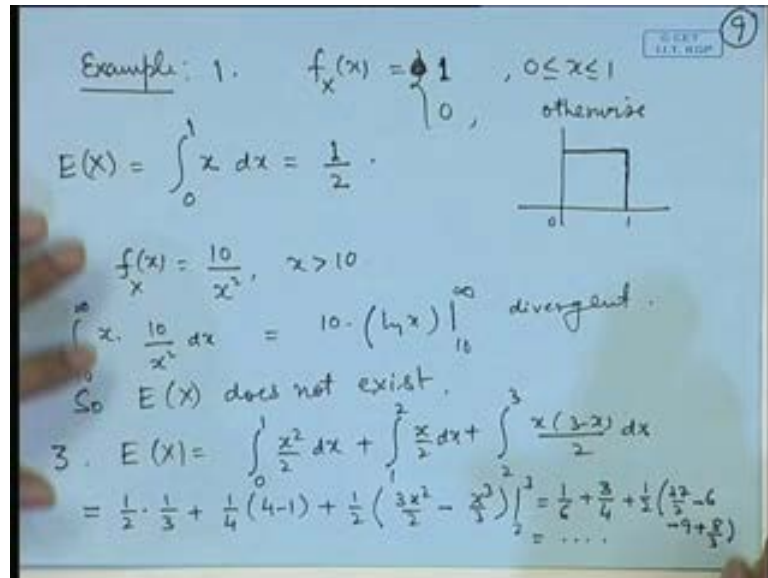 9
C CET
I.I.T. KGP
Example: 1. f_X(x) = { 1 , 0 ≤ x ≤ 1
0 , otherwise
E(X) = ∫_0^1 x dx = 1/2 .
0 1
f_X(x) = 10/x², x > 10
∫^∞ x · 10/x² dx = 10 · (ln x) |_10^∞ divergent .
So E(X) does not exist .
3 . E(X) = ∫_0^1 x²/2 dx + ∫_1^2 x/2 dx + ∫_2^3 x(3-x)/2 dx
= 1/2 · 1/3 + 1/4 (4-1) + 1/2 ( 3x²/2 - x³/3 ) |_2^3 = 1/6 + 3/4 + 1/2 ( 27/2 - 6
- 9 + 8/3 )
= ....